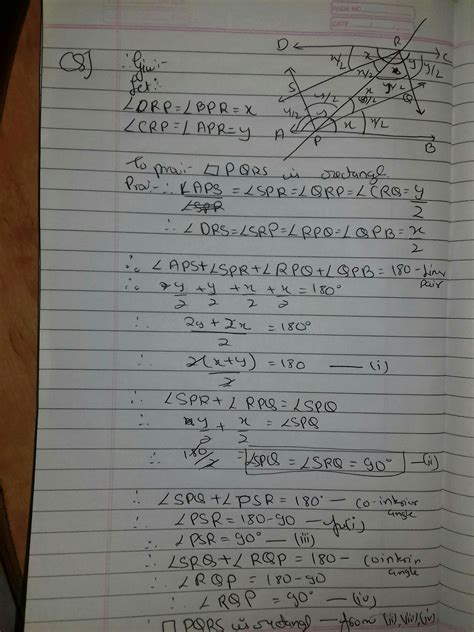 PAGE NO.
DATE
Q8] ∴ Giv:-
let:-
∠DRP = ∠BPR = x
∠CRP = ∠APR = y
D R C
x/2 x y y/2
x/2 x y/2
S Q
y/2 y/2 x
A y x x/2
P B
To prov:- □ PQRS is rectangle
Prov:- ∴ ∠APS = ∠SPR = ∠QRP = ∠CRQ = y/2
∠SPR
∴ ∠DRS = ∠SRP = ∠RPQ = ∠QPB = x/2
∴ ∠APS + ∠SPR + ∠RPQ + ∠QPB = 180 - linr pair
∴ y/2 + y/2 + x/2 + x/2 = 180°
∴ 2y + 2x/2 = 180°
∴ 2(x+y)/2 = 180 — (i)
∴ ∠SPR + ∠RPQ = ∠SPQ
∴ y/2 + x/2 = ∠SPQ
∴ 180/2 = ∠SPQ = ∠SRQ = 90° — (ii)
∴ ∠SPQ + ∠PSR = 180° — co-intrior angle
∴ ∠PSR = 180 - 90 — fr(i)
∴ ∠PSR = 90° — (iii)
∴ ∠SRQ + ∠RQP = 180 - cointrin angle
∴ ∠RQP = 180 - 90
∴ ∠RQP = 90° — (iv)
∴ □ PQRS is rectangl — from